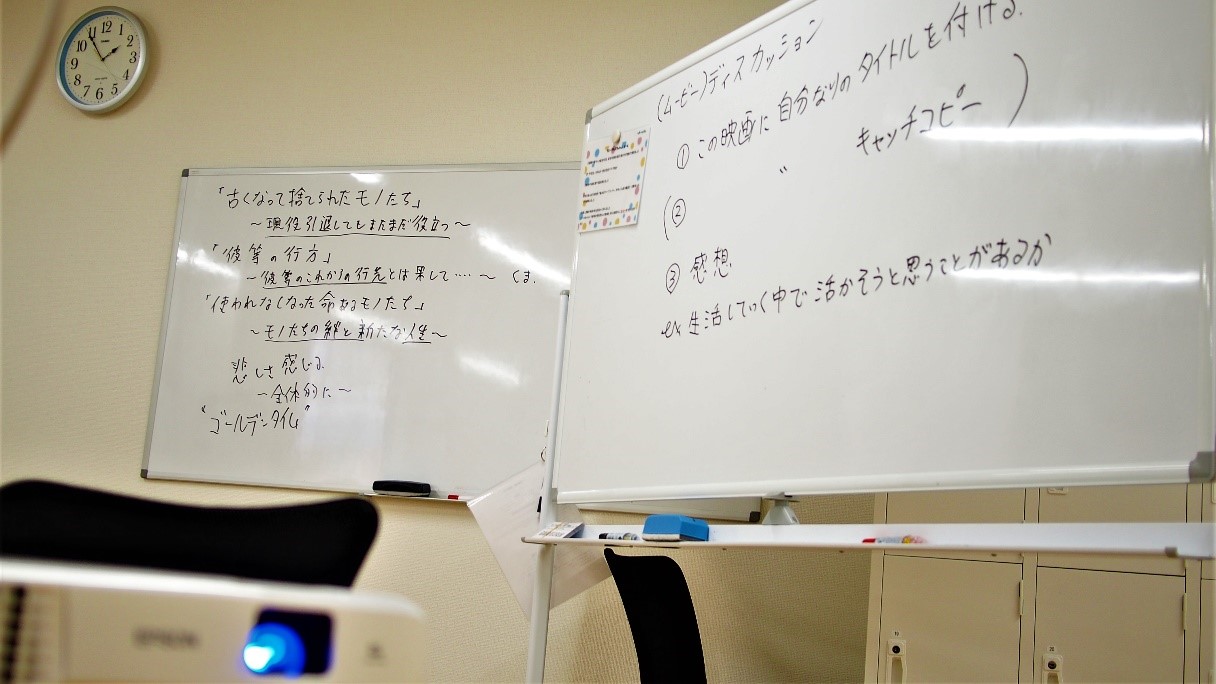 「古くなって捨てられたモノたち」
～現役引退してもまだまだ役立つ～
「彼等の行方」
～彼等のこれからの行先とは果して‥‥～ くま.
「使われなくなった命あるモノたち」
～モノたちの絆と新たな人生～
悲しさ感じる
～全体的に～
"ゴールデンタイム"
(ムービー)ディスカッション
① この映画に自分なりのタイトルを付ける.
(② 〃 キャッチコピー )
③ 感想
ex 生活していく中で活かそうと思うことがあるか
12
11
1
10
2
9
3
8
4
7
5
6
EPSON